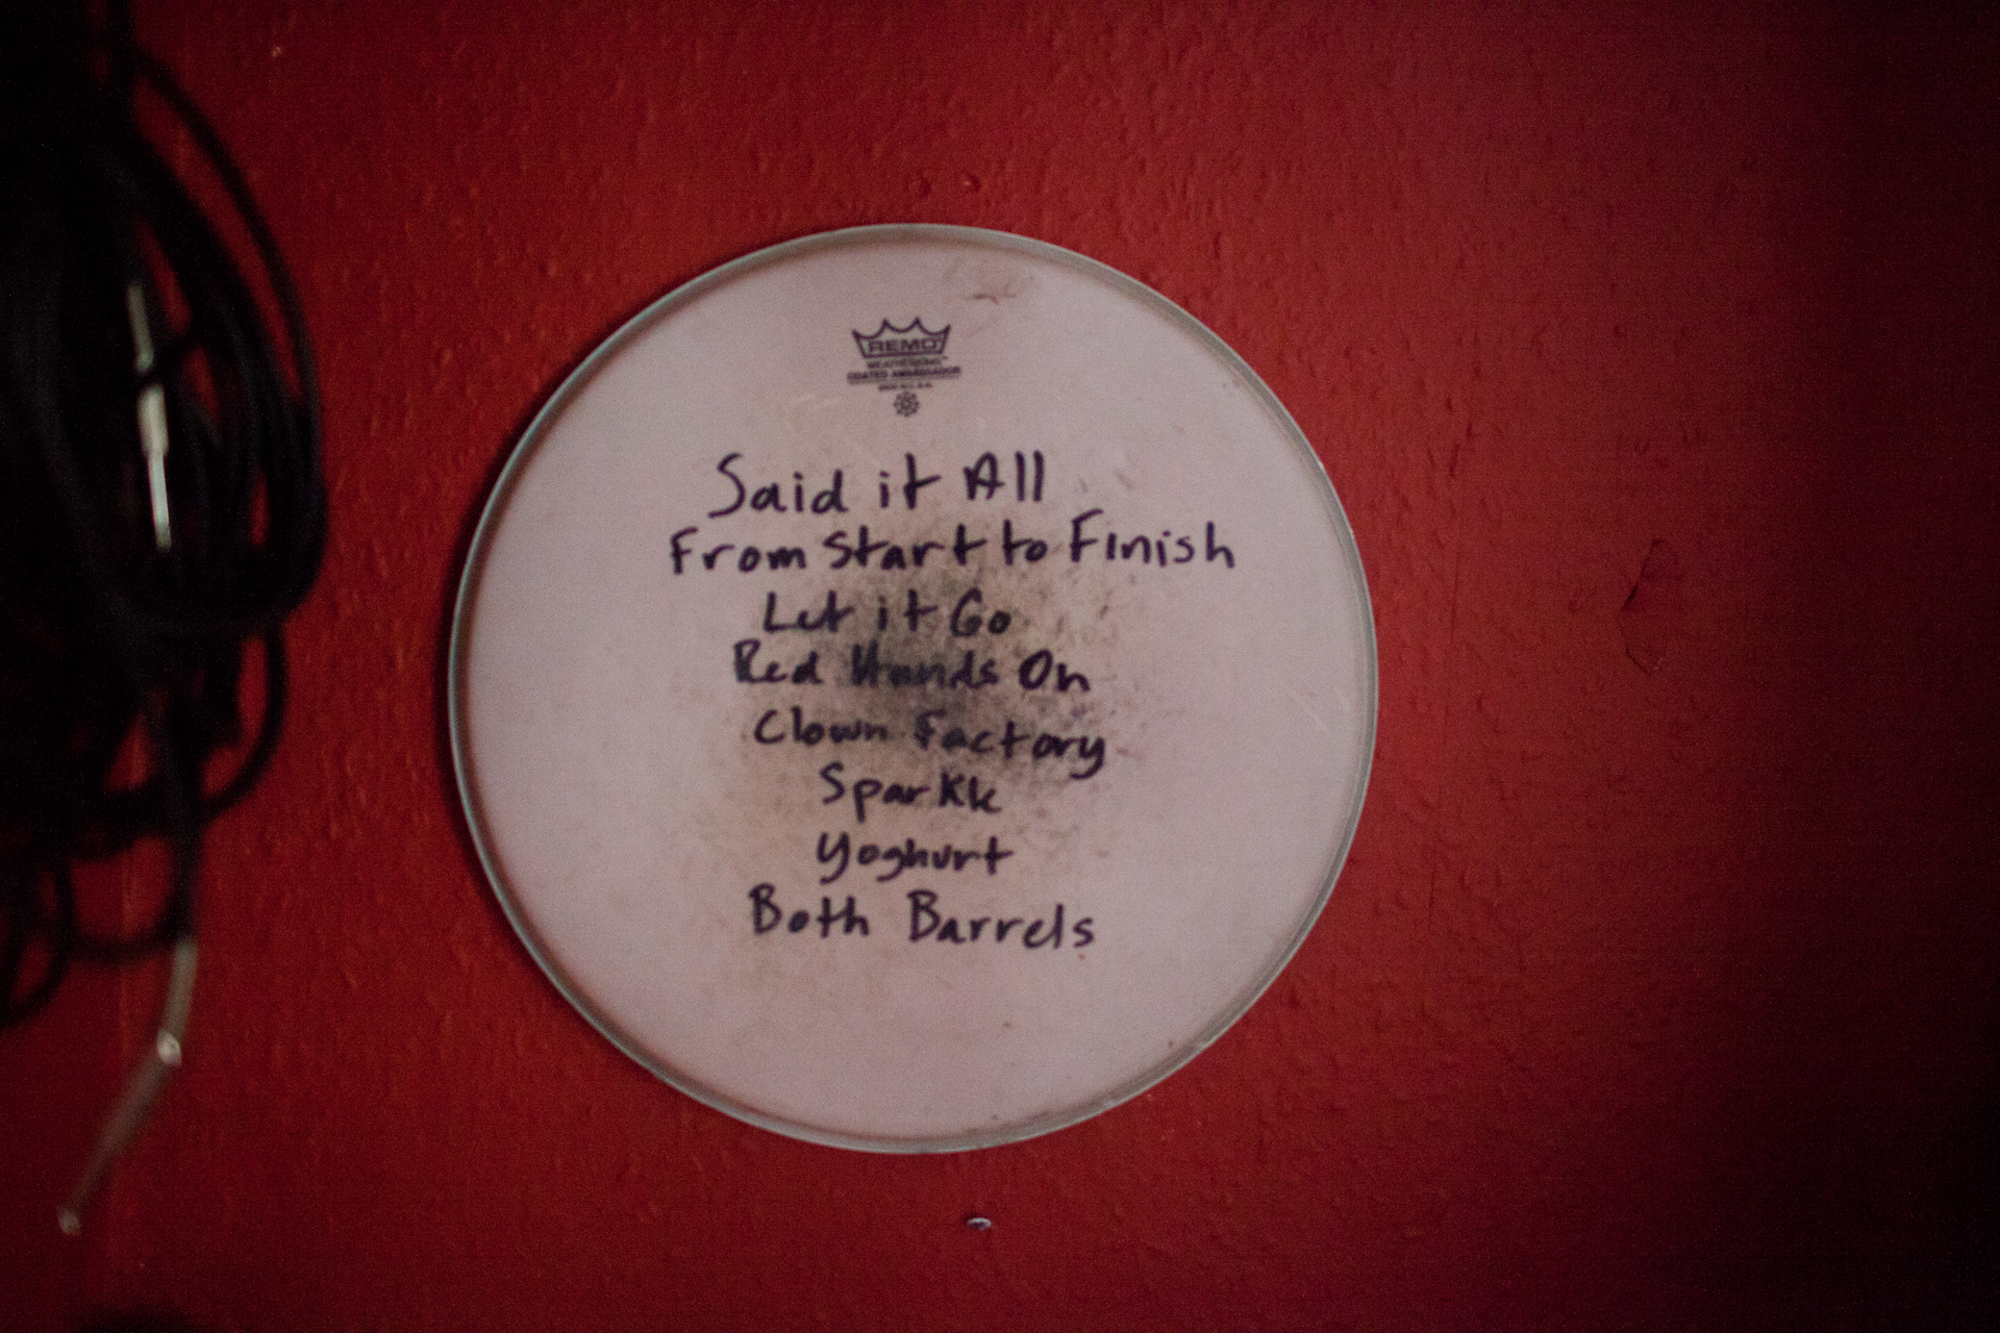 REMO
WEATHERKING
COATED AMBASSADOR
MADE IN U.S.A.
Said it All
From Start to Finish
Let it Go
Red Hands On
Clown Factory
Sparkk
Yoghurt
Both Barrels